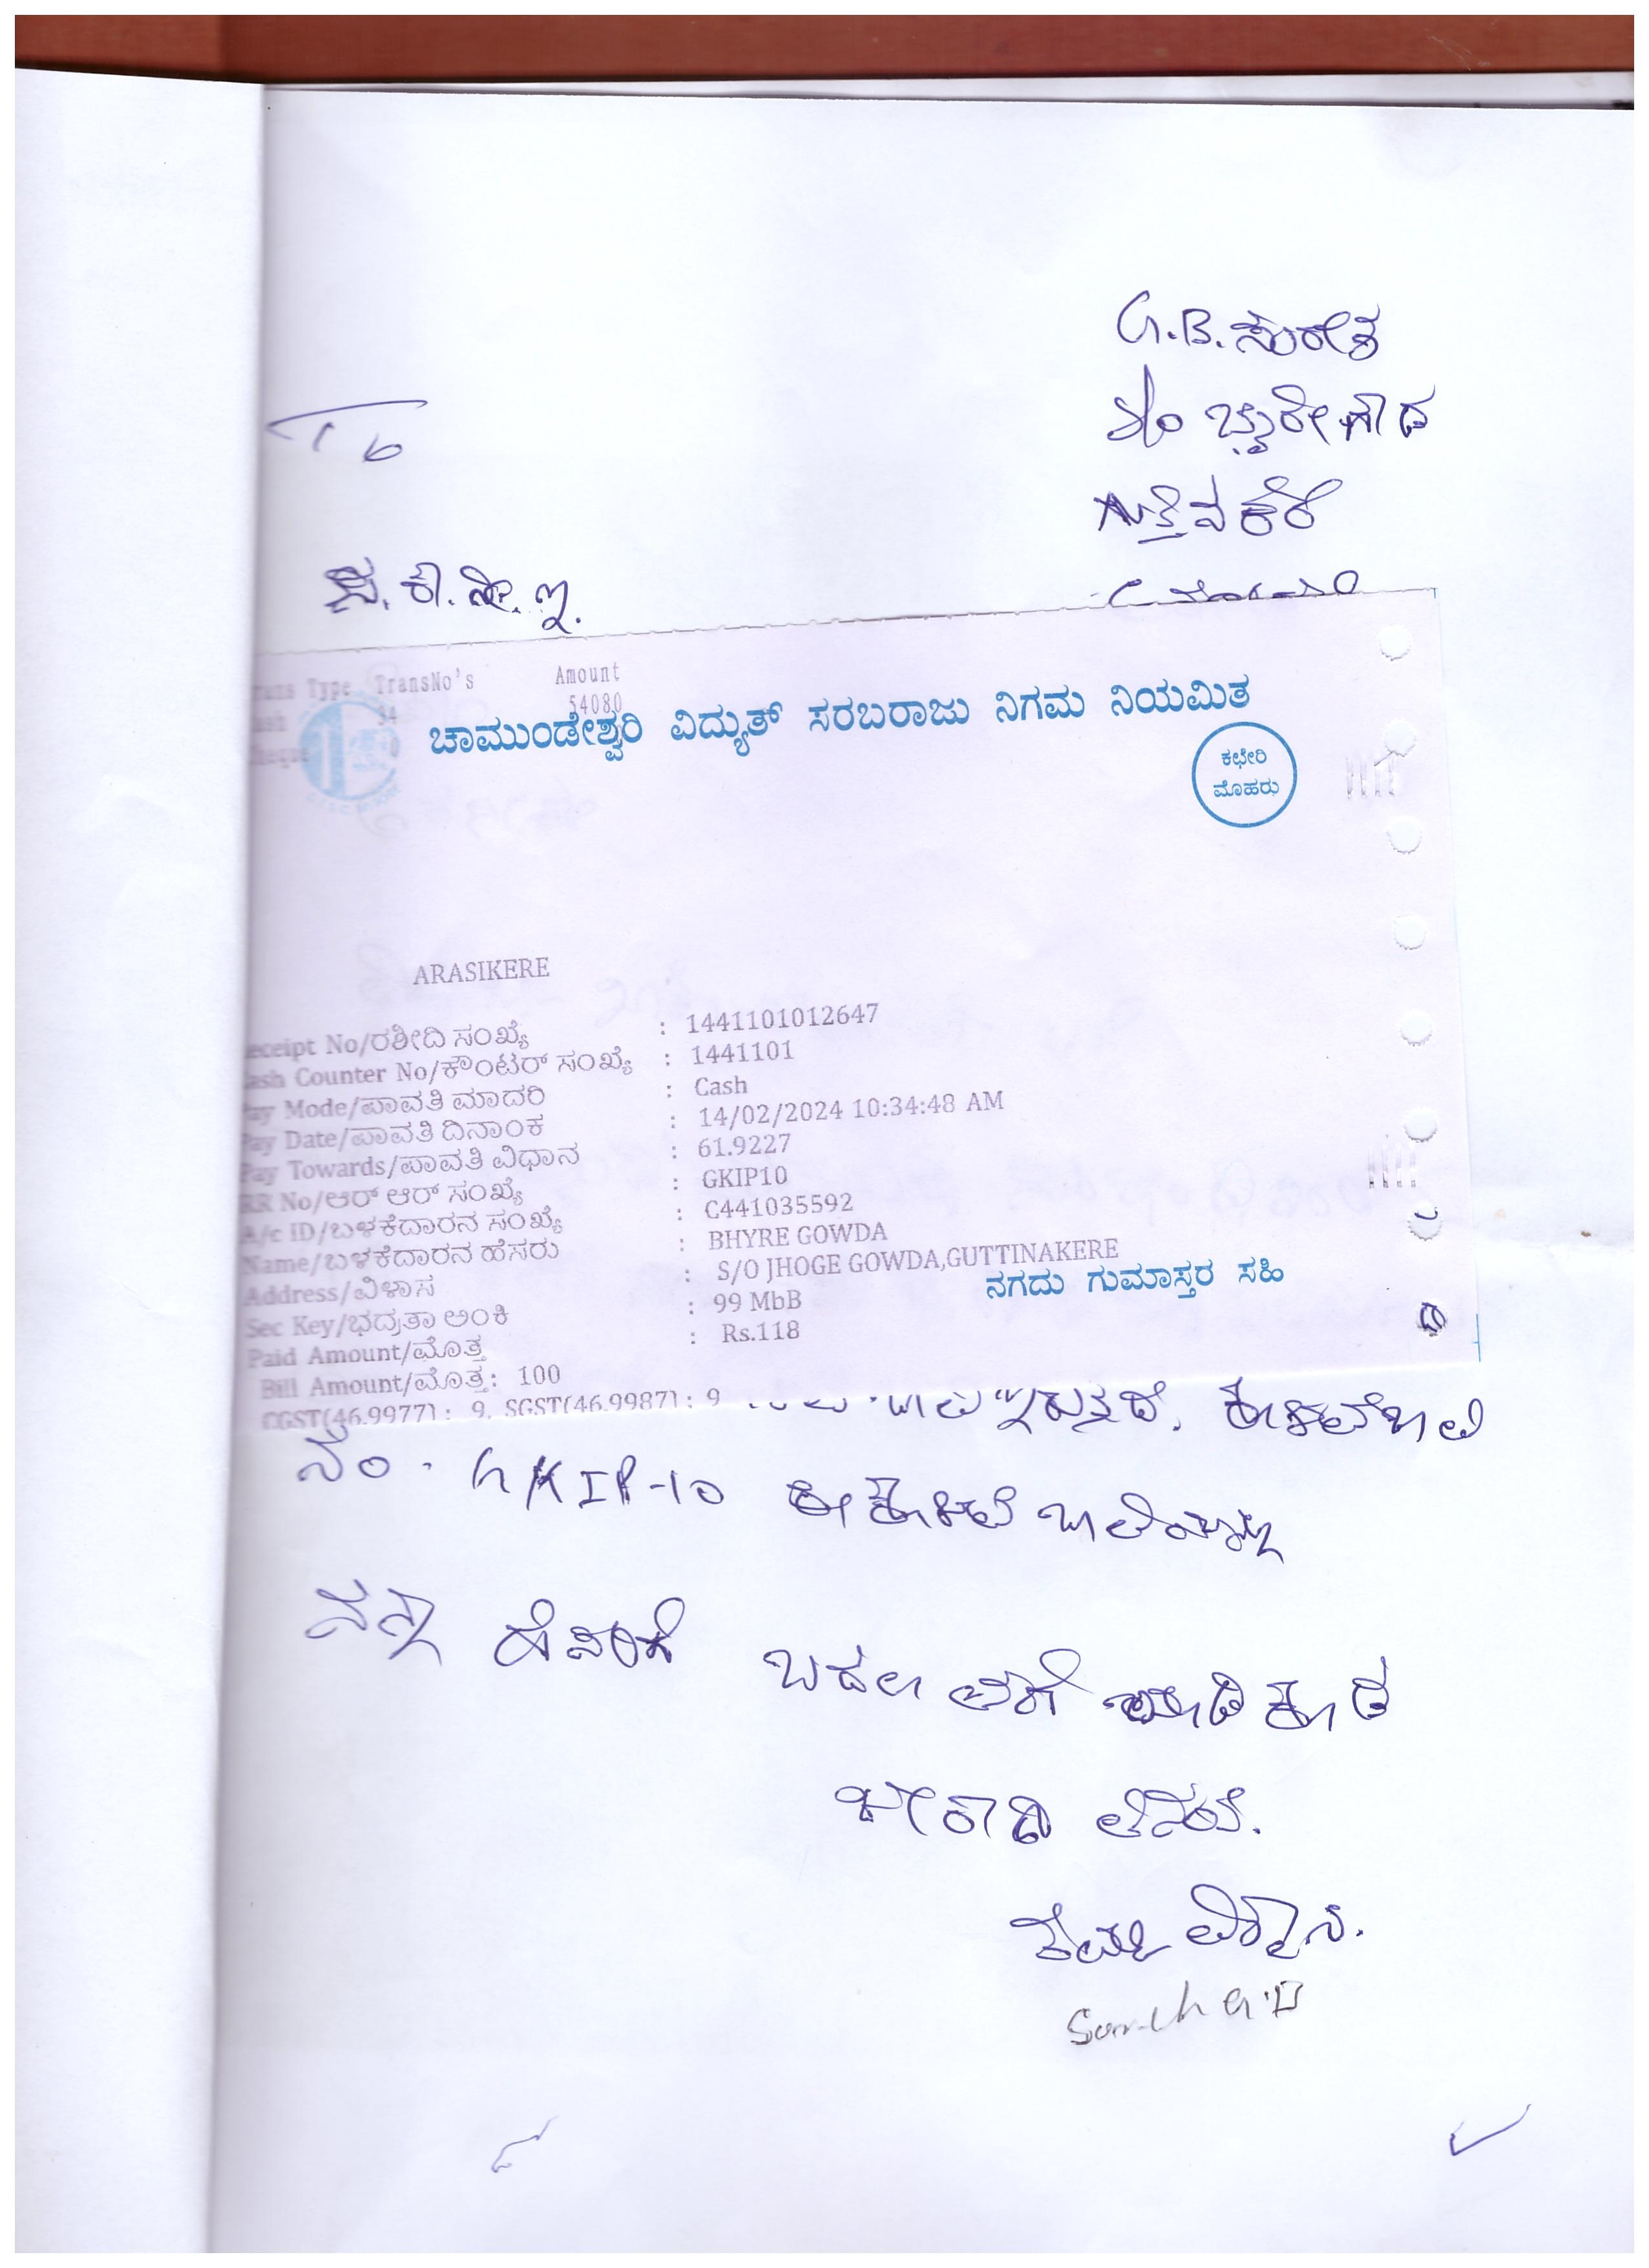 G.B. ಸುರೇಶ
S/o ಬೈರೇಗೌಡ
ಗುತ್ತಿನಕೆರೆ
To
ಸ. ಕಾ. ನೀ. ಇ.
Trans Type TransNo's Amount
Cash 34 54080
Cheque 0
ಚಾಮುಂಡೇಶ್ವರಿ ವಿದ್ಯುತ್ ಸರಬರಾಜು ನಿಗಮ ನಿಯಮಿತ
ಕಛೇರಿ
ಮೊಹರು
ARASIKERE
eceipt No/ರಶೀದಿ ಸಂಖ್ಯೆ : 1441101012647
ash Counter No/ಕೌಂಟರ್ ಸಂಖ್ಯೆ : 1441101
ay Mode/ಪಾವತಿ ಮಾದರಿ : Cash
Pay Date/ಪಾವತಿ ದಿನಾಂಕ : 14/02/2024 10:34:48 AM
Pay Towards/ಪಾವತಿ ವಿಧಾನ : 61.9227
RR No/ಆರ್ ಆರ್ ಸಂಖ್ಯೆ : GKIP10
A/c ID/ಬಳಕೆದಾರನ ಸಂಖ್ಯೆ : C441035592
Name/ಬಳಕೆದಾರನ ಹೆಸರು : BHYRE GOWDA
Address/ವಿಳಾಸ : S/O JHOGE GOWDA,GUTTINAKERE
Sec Key/ಭದ್ರತಾ ಅಂಕಿ : 99 MbB
Paid Amount/ಮೊತ್ತ : Rs.118
ನಗದು ಗುಮಾಸ್ತರ ಸಹಿ
Bill Amount/ಮೊತ್ತ: 100
CGST(46.9977) : 9, SGST(46.9987) : 9
ನಂ. GKIP-10 ಈ
ನನ್ನ ಹೆಸರಿಗೆ ಬದಲಾವಣೆ ಮಾಡಿಕೊಡ
ಬೇಕಾಗಿ ವಿನಂತಿ.
ತಮ್ಮ ವಿಶ್ವಾಸಿ.